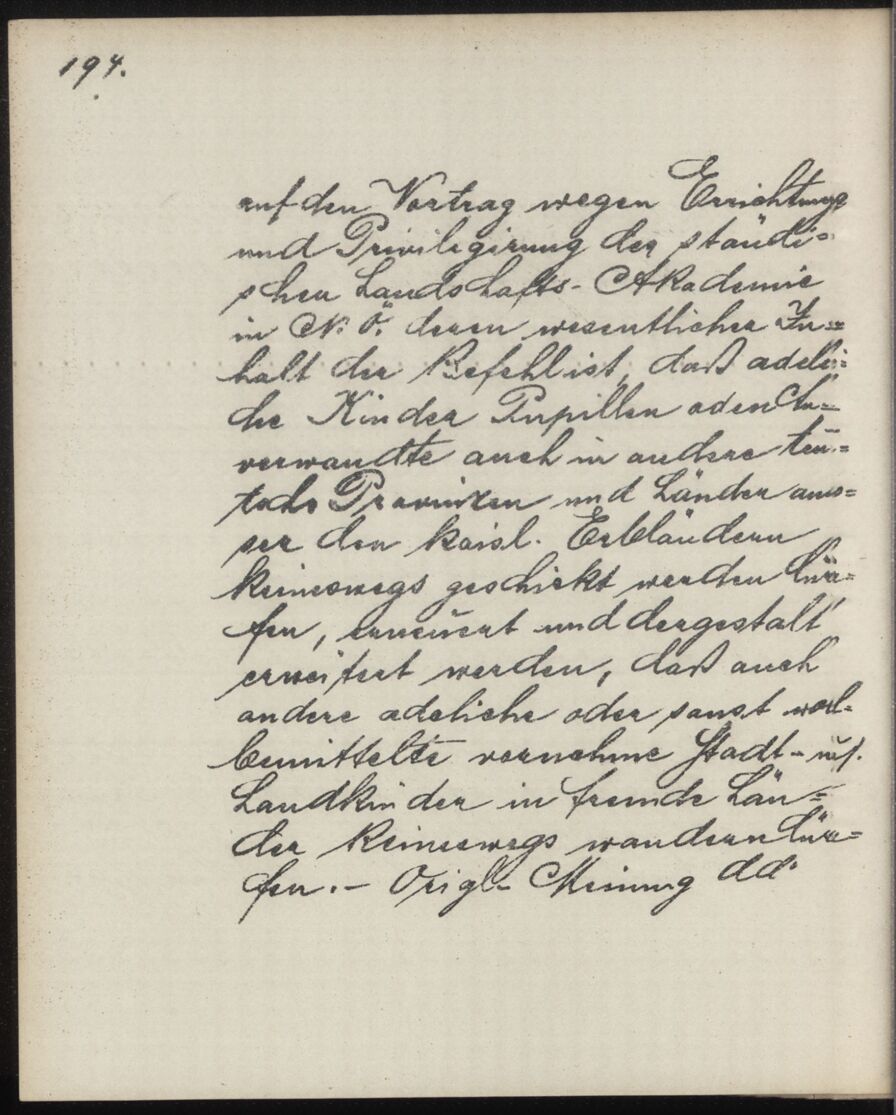 194.
auf den Vortrag wegen Errichtung
und Privilegirung der ständi=
schen Landschafts-Akademie
in N. Ö. deren wesentlicher In=
halt der Befehl ist, daß adeli=
che Kinder Pupillen oder An=
verwandte auch in andere teu=
tsche Provinzen und Länder aus=
ser den kaisl. Erbländern
keineswegs geschickt werden dür=
fen, erneuert und dergestalt
erweitert werden, daß auch
andere adeliche oder sonst wol=
bemittelte vornehme Stadt- und
Landkinder in fremde Län=
der keineswegs wandern dür=
fen. – Origl. Meinung dd.